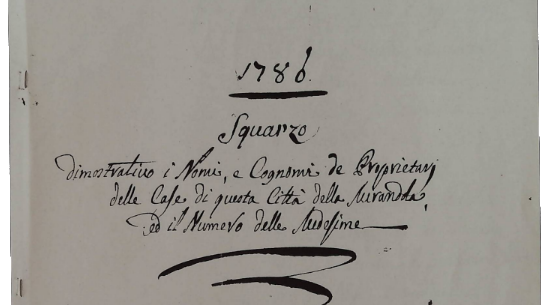 1786.
Squarzo
dimostrativo i Nomi, e Cognomi de Proprietarj
delle Case di questa Città della Mirandola,
ed il Numero delle Medesime